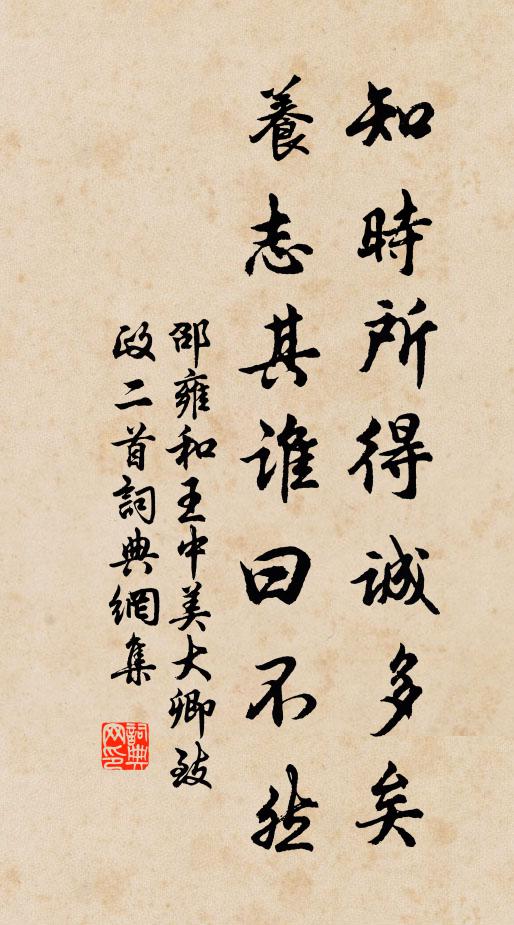 知時所得誠多矣
養志其誰曰不然
邵雍和王中美大卿致
政二首詞典網集
詞典
网印